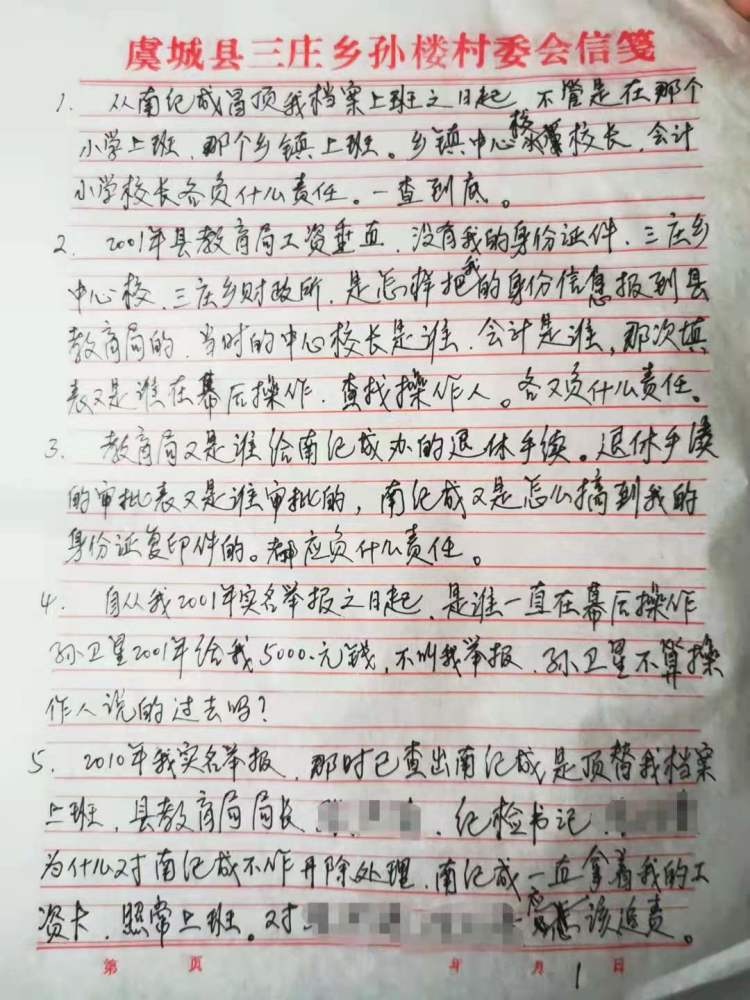 虞城县三庄乡孙楼村委会信笺
1. 从南纪成冒顶我档案上班之日起 不管是在那个
小学上班，那个乡镇上班。乡镇中心校校长，会计
小学校长各负什么责任。一查到底。
2. 2001年县教育局工资垂直，没有我的身份证件，三庄乡
中心校，三庄乡财政所，是怎样把我的身份信息报到县
教育局的，当时的中心校长是谁，会计是谁，那次填
表又是谁在幕后操作，查找操作人。各又负什么责任。
3. 教育局又是谁给南纪成办的退休手续。退休手续
的审批表又是谁审批的，南纪成又是怎么搞到我的
身份证复印件的。都应负什么责任。
4. 自从我2001年实名举报之日起，是谁一直在幕后操作
孙卫星2001年给我5000.元钱，不叫我举报，孙卫星不算操
作人说的过去吗？
5. 2010年我实名举报，那时已查出南纪成是顶替我档案
上班，县教育局局长 ，纪检书记
为什么对南纪成不作开除处理，南纪成一直拿着我的工
资卡，照常上班。对 应该追责。
第 页 年 月 1 日